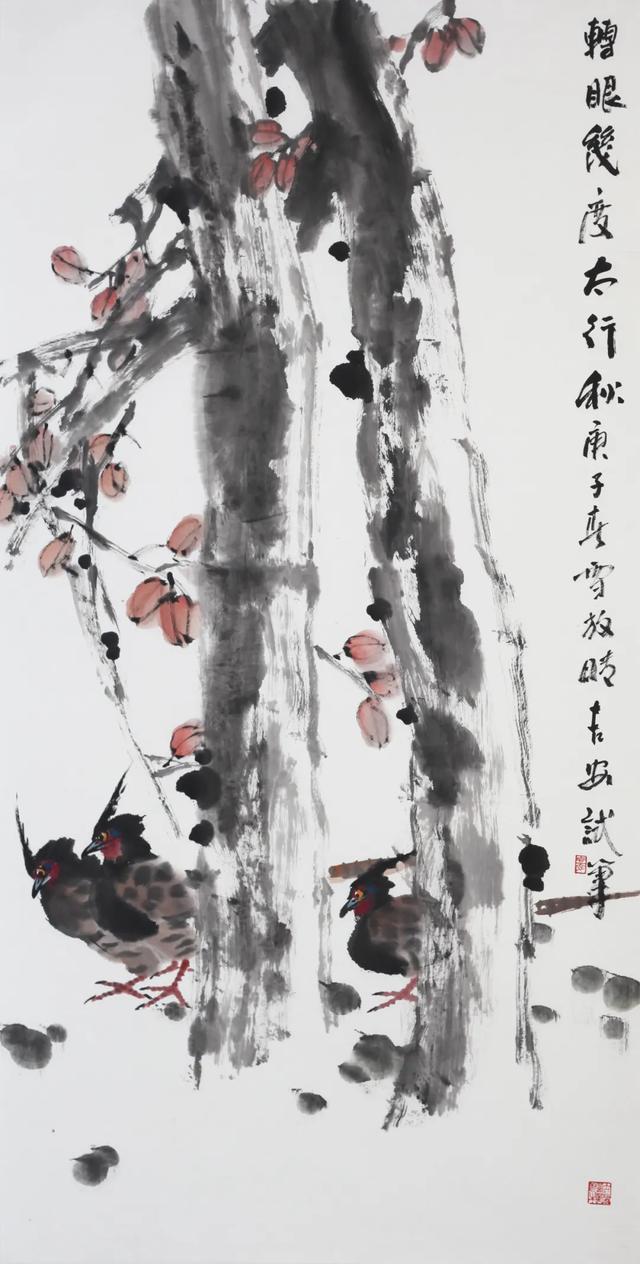 轉眼幾度太行秋庚子春雪放晴吉安試筆